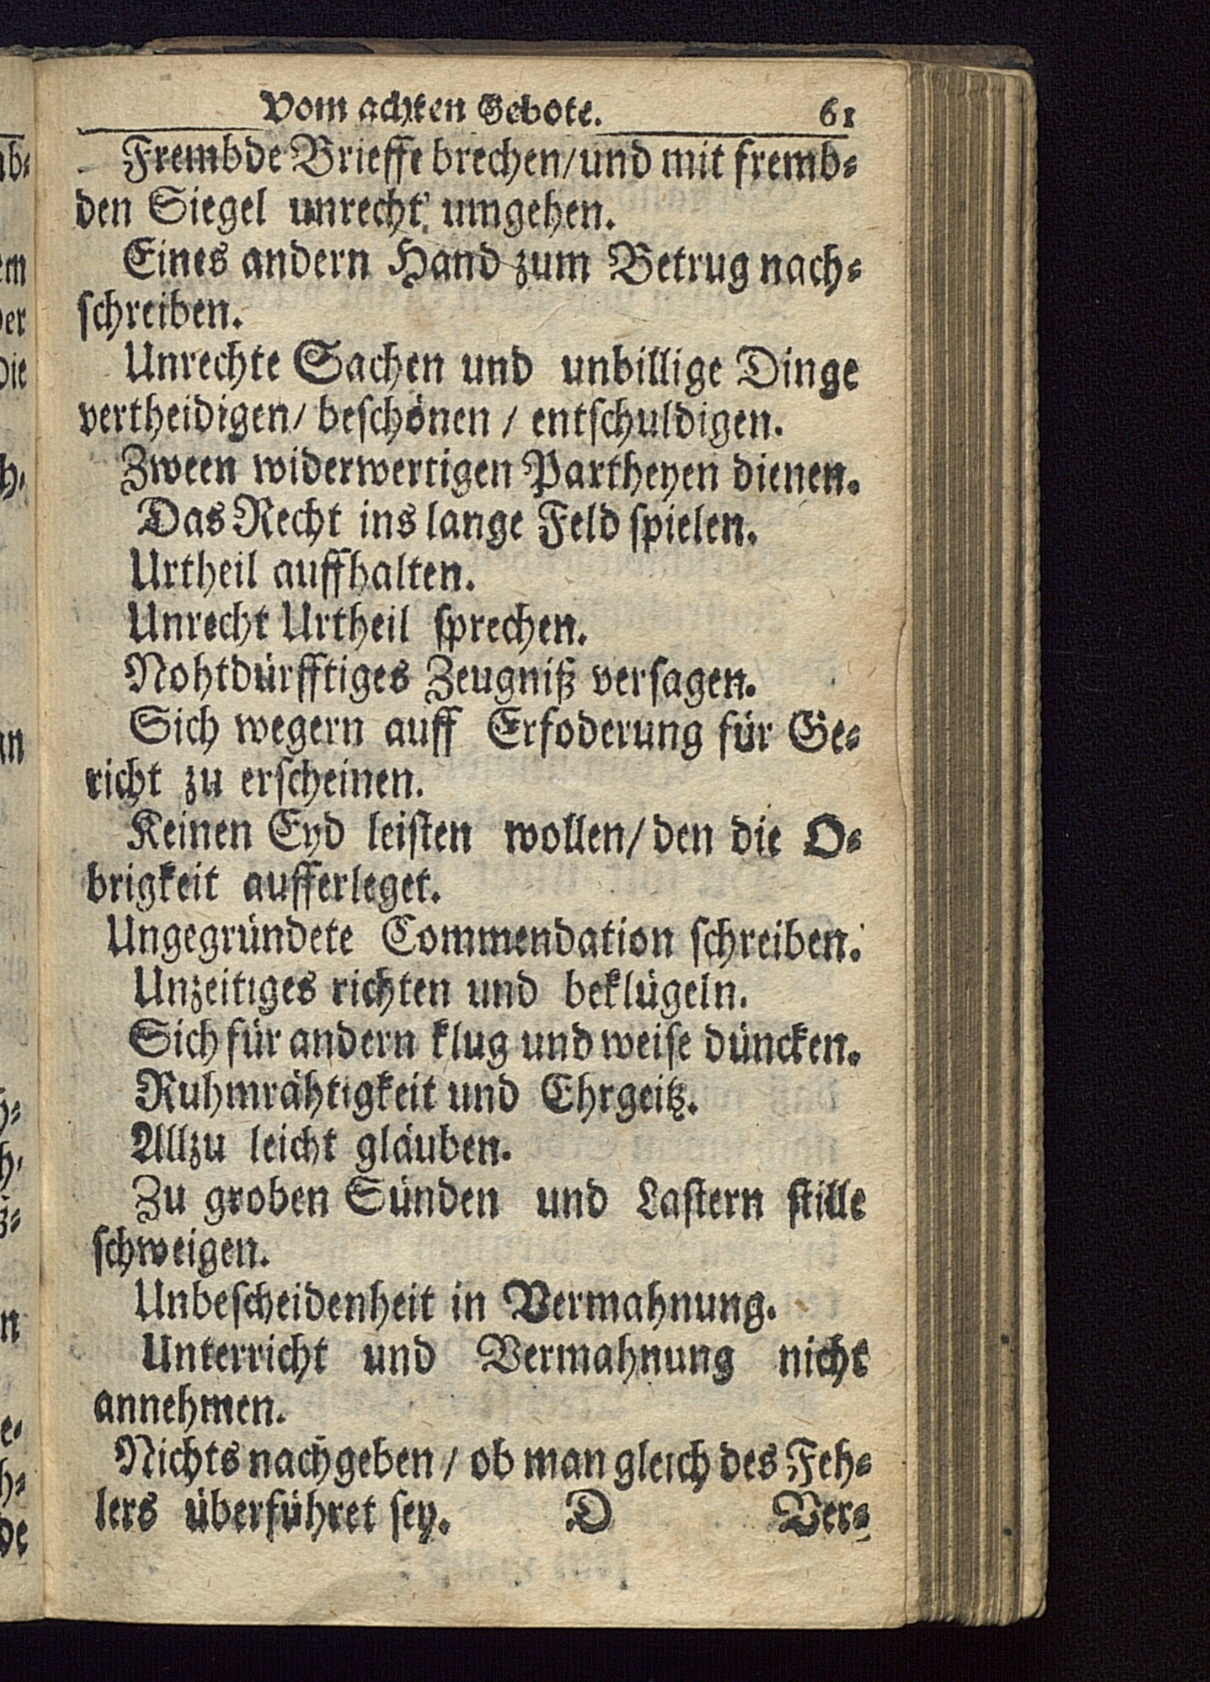 Vom achten Gebote. 61
Frembde Brieffe brechen/ und mit fremb-
den Siegel unrecht umgehen.
Eines andern Hand zum Betrug nach-
schreiben.
Unrechte Sachen und unbillige Dinge
vertheidigen/ beschönen / entschuldigen.
Zween widerwertigen Partheyen dienen.
Das Recht ins lange Feld spielen.
Urtheil auffhalten.
Unrecht Urtheil sprechen.
Nohtdürfftiges Zeugniß versagen.
Sich wegern auff Erfoderung für Ge-
richt zu erscheinen.
Keinen Eyd leisten wollen/ den die O-
brigkeit aufferleget.
Ungegründete Commendation schreiben.
Unzeitiges richten und beklügeln.
Sich für andern klug und weise düncken.
Ruhmrähtigkeit und Ehrgeitz.
Allzu leicht gläuben.
Zu groben Sünden und Lastern stille
schweigen.
Unbescheidenheit in Vermahnung.
Unterricht und Vermahnung nicht
annehmen.
Nichts nachgeben / ob man gleich des Feh-
lers überführet sey. D Ver-